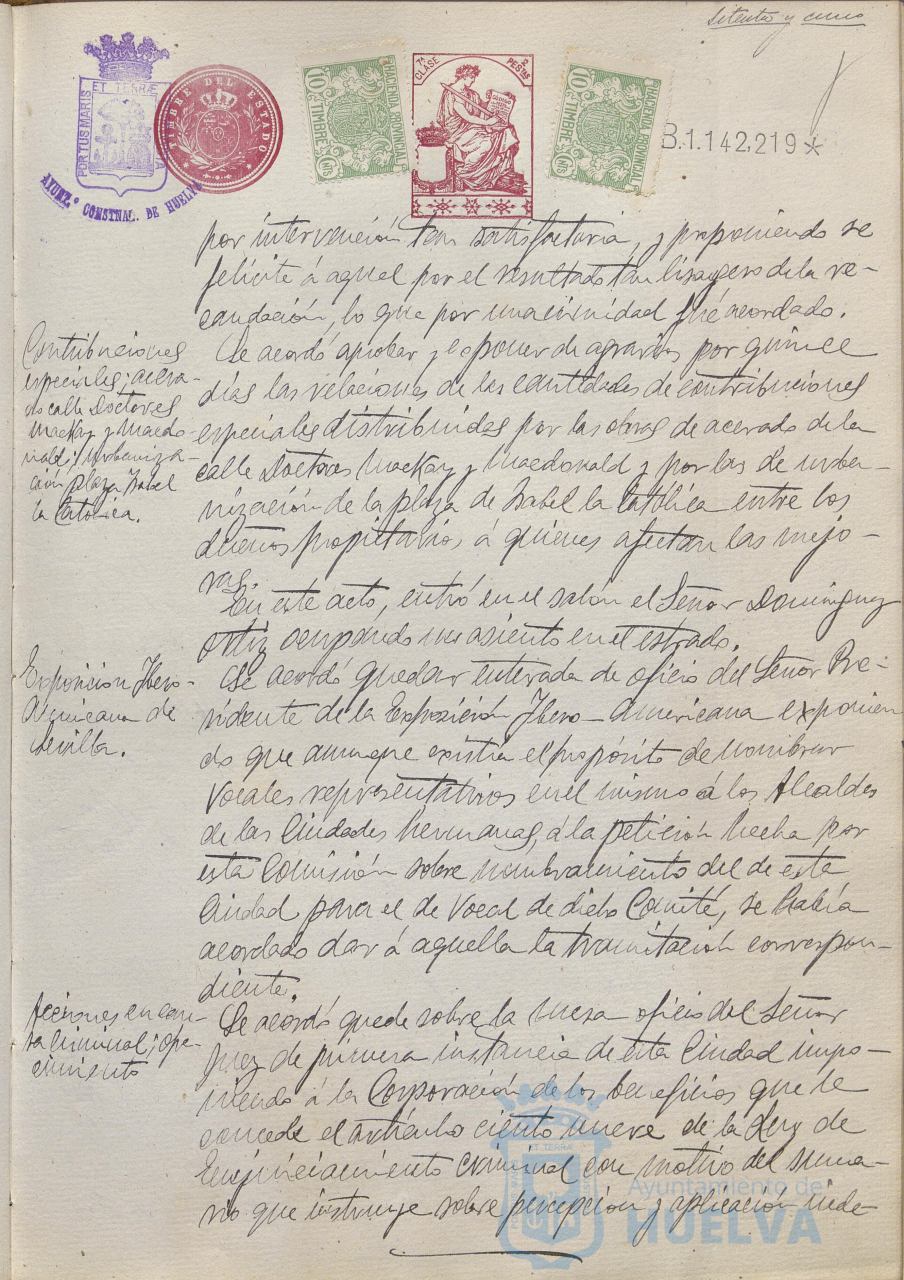 Setenta y cinco
PORTUS MARIS ET TERRÆ CUSTODIA
AYUNT.º CONSTNAL. DE HUELVA
TIMBRE DEL ESTADO
HACIENDA PROVINCIAL
10 Cts TIMBRE 10 Cts
7ª CLASE 2 PESTAS
HACIENDA PROVINCIAL
10 Cts TIMBRE 10 Cts
B.1.142.219*
por intervención tan satisfactoria, y proponiendo se
felicite á aquel por el resultado tan lisagero de la re-
caudación, lo que por unanimidad fué acordado.
Contribuciones
especiales; acera-
do calle Doctores
Mackay y Macdo
nald; urbaniza-
ción plaza Isabel
la Católica.
Se acordó aprobar y exponer de agravios por quince
días las relaciones de las cantidades de contribuciones
especiales distribuidas por las obras de acerado de la
calle Doctores Mackay y Macdonald y por las de urba-
nización de la plaza de Isabel la Católica entre los
dueños propietarios, á quienes afectan las mejo-
ras.
En este acto, entró en el salón el Señor Dominguez
Ortiz ocupando un asiento en el estrado.
Exposicion Ibero-
Americana de
Sevilla.
Se acordó quedar enterada de oficio del Señor Pre-
sidente de la Exposición Ibero-americana exponien
do que aunque existía el propósito de nombrar
Vocales representativos en el mismo á los Alcaldes
de las Ciudades hermanas, á la petición hecha por
esta Comisión sobre nombramiento del de esta
Ciudad para el de Vocal de dicho Comité, se había
acordado dar á aquella la tramitación correspon-
diente.
Acciones en cau-
sa criminal; ofre-
cimiento
Se acordó quede sobre la mesa oficio del Señor
Juez de primera instancia de esta Ciudad impo-
niendo á la Corporación de los beneficios que le
concede el artículo ciento nueve de la Ley de
Enjuiciamiento criminal con motivo del suma-
rio que instruye sobre percepción y aplicación inde-
Ayuntamiento de
HUELVA